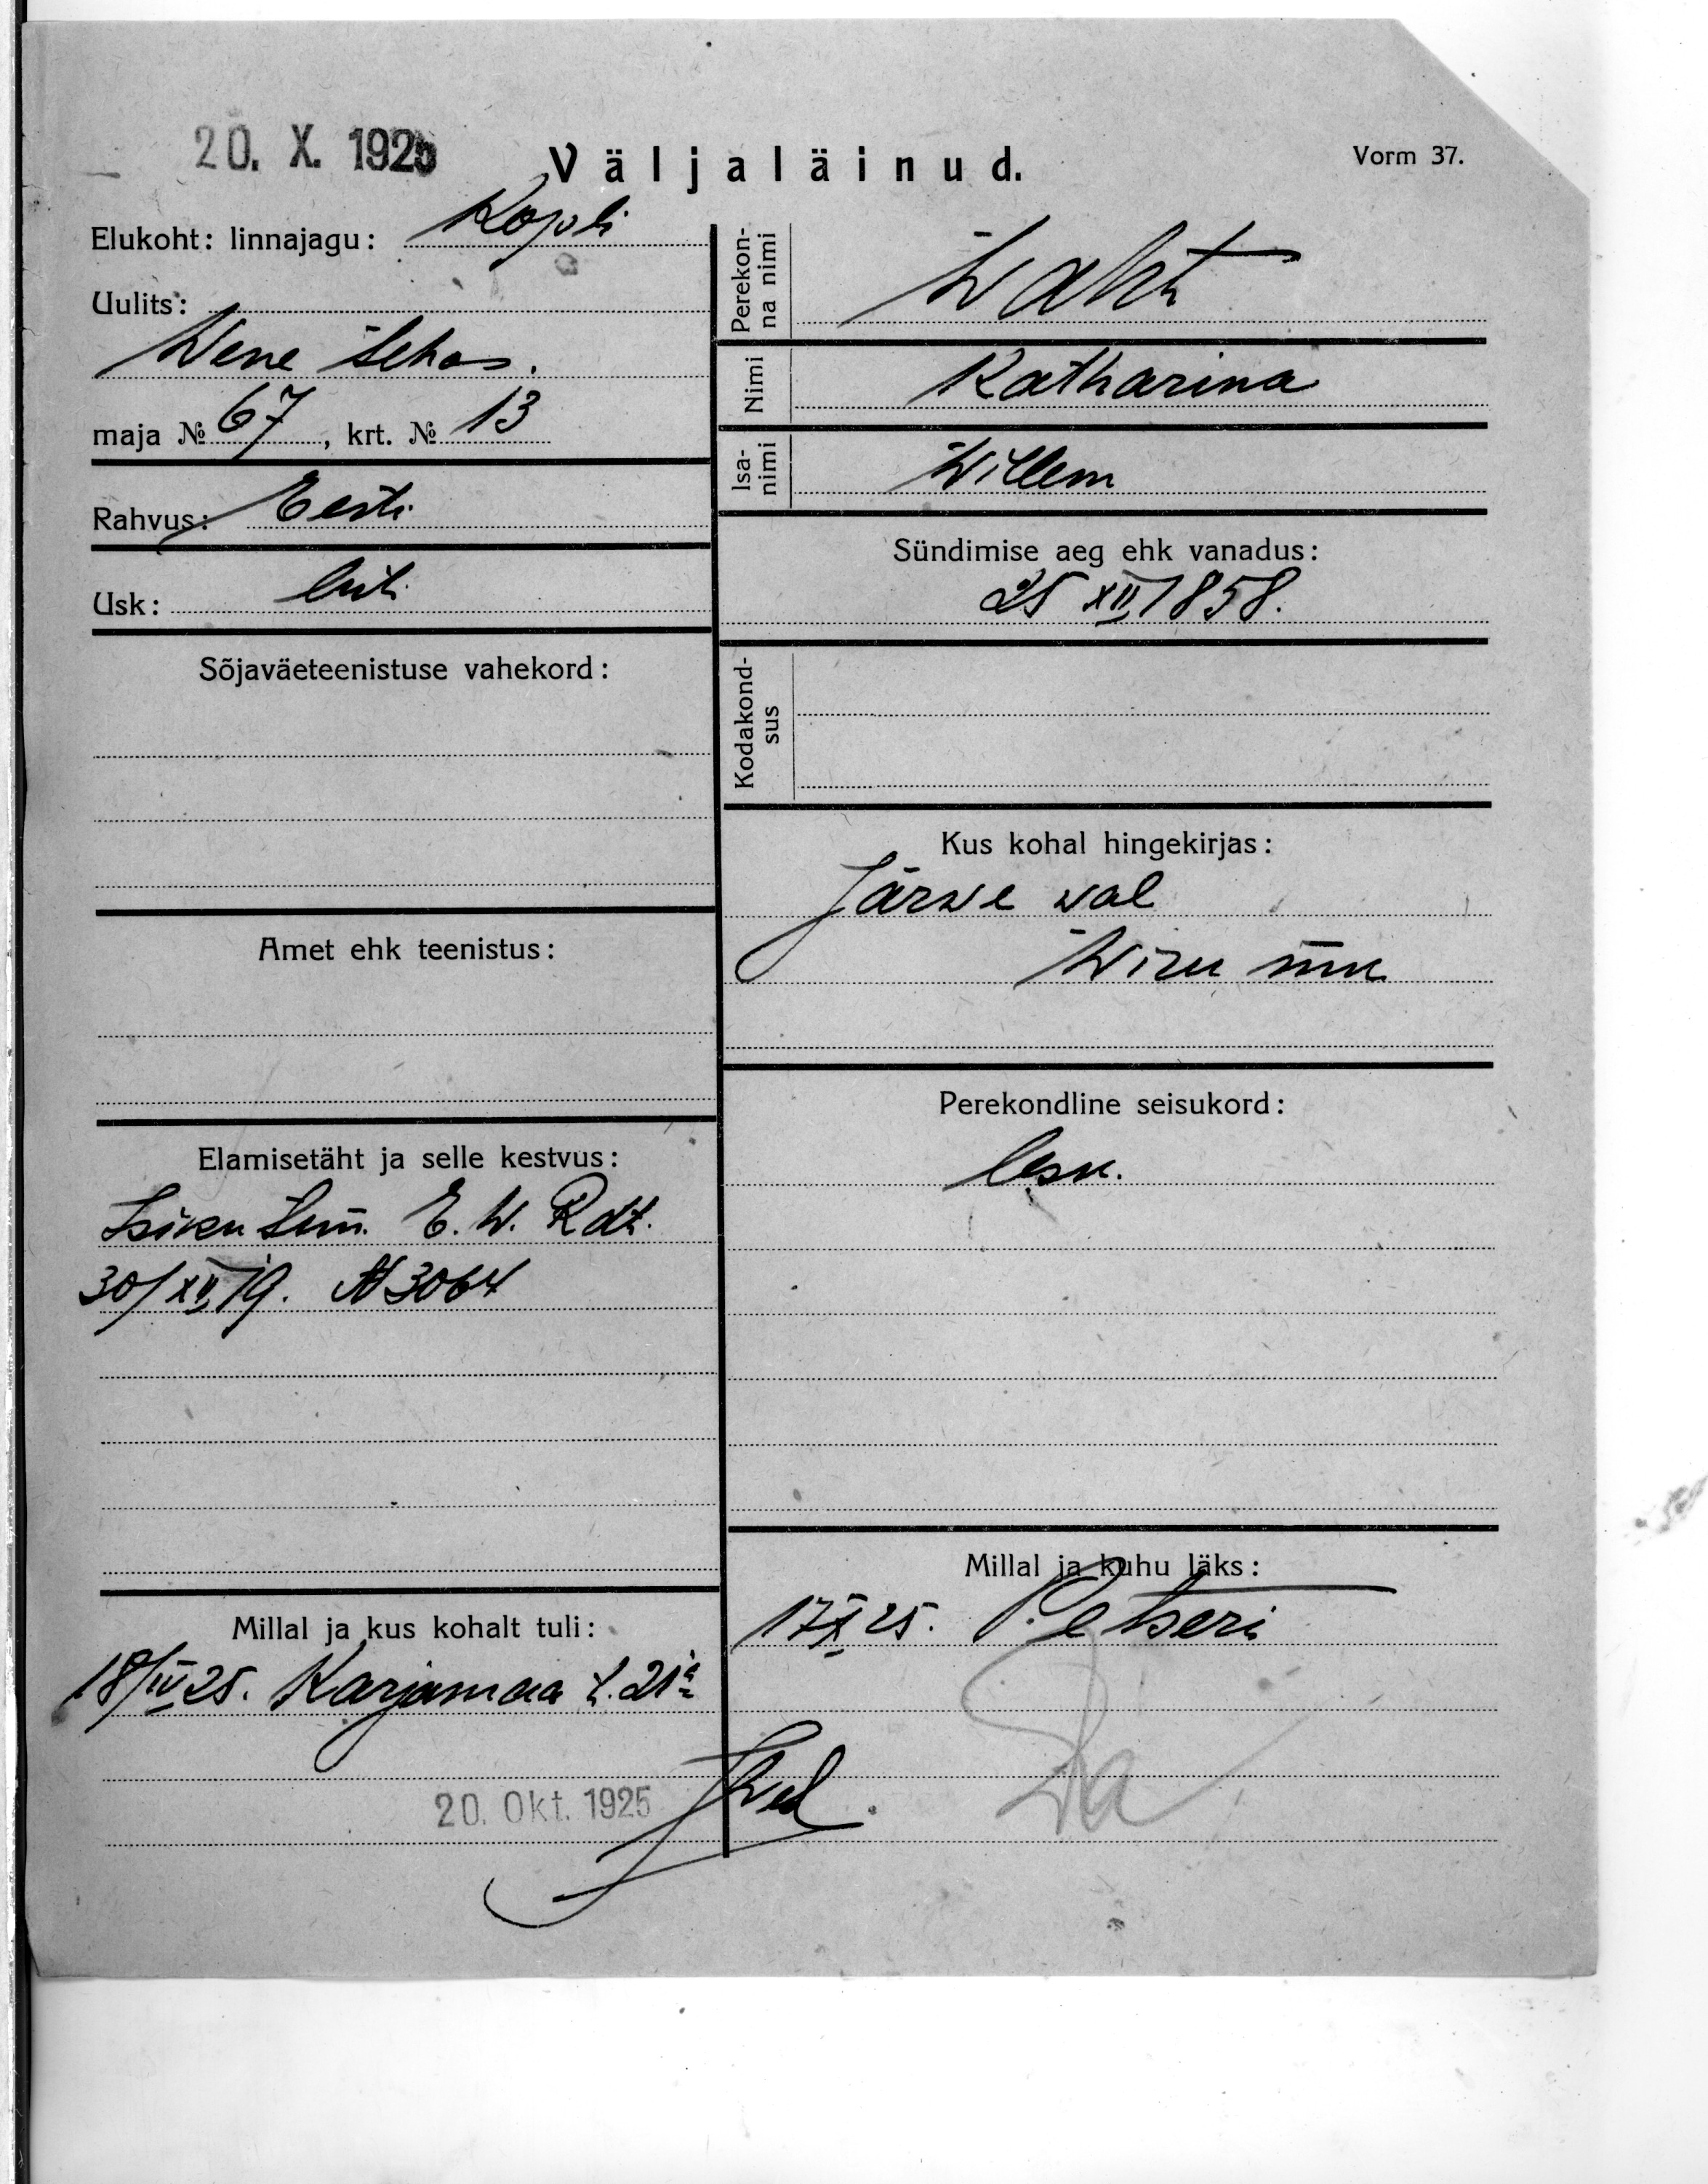 20. X. 1925
Väljaläinud.
Vorm 37.
Elukoht: linnajagu: Kopli
Uulits:
Wene tehas.
maja № 67, krt. № 13
Rahvus: Eesti
Usk: lut.
Sõjaväeteenistuse vahekord:
Amet ehk teenistus:
Elamisetäht ja selle kestvus:
Isiku tun. E. W. Rdt.
30/XII 19. № 3064
Millal ja kus kohalt tuli:
18/IV 25. Karjamaa t. 21
20. Okt. 1925
Perekon-
na nimi
Waht
Nimi
Katharina
Isa-
nimi
Willem
Sündimise aeg ehk vanadus:
25 XII 1858.
Kodakond-
sus
Kus kohal hingekirjas:
Järwe wal
Wiru mk
Perekondline seisukord:
lesk.
Millal ja kuhu läks:
17 X 25. Petseri
Wa